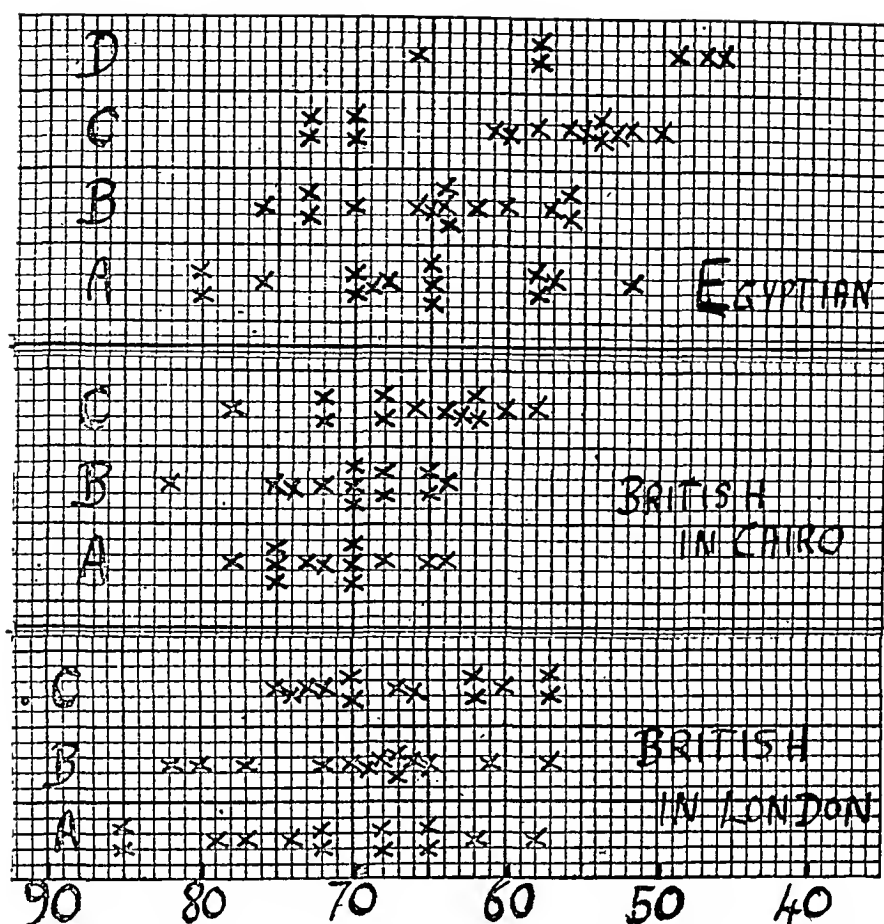 D
C
B
A
EGYPTIAN
C
B
A
BRITISH
IN CAIRO
C
B
A
BRITISH
IN LONDON
90 80 70 60 50 40